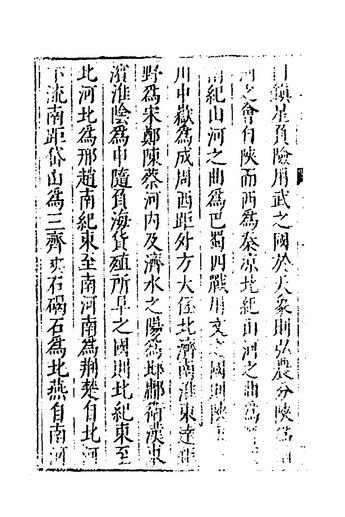 鎮星負險用武之國於天象則弘農分陝爲
河之會自陝而西爲秦涼北紀山河之曲爲
南紀山河之曲爲巴蜀四戰用文之國則陝
川中嶽爲成周西距外方大伾北濟南淮東達
野爲宋鄭陳蔡河内及濟水之陽爲鄁衞漢東
濱淮陰爲申隨負海貨殖所阜之國則北紀東至
北河北爲邢趙南紀東至南河南爲荆楚自北河
下流南距岱山爲三齊夾右碣石爲北燕自南河